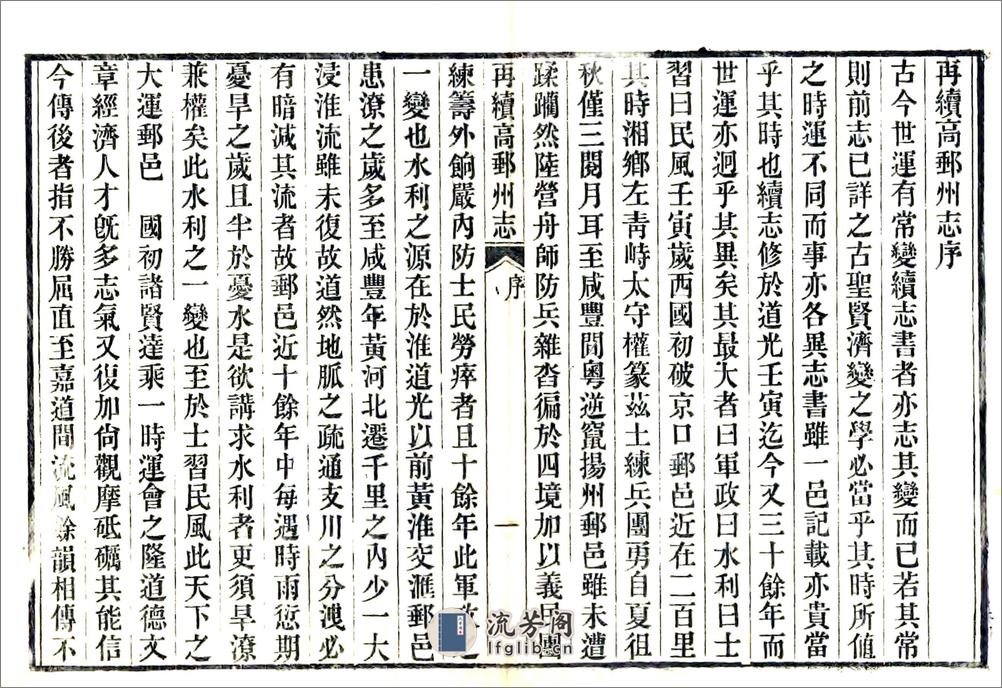 再續高郵州志序
古今世運有常變續志書者亦志其變而已若其常
則前志已詳之古聖賢濟變之學必當乎其時所值
之時運不同而事亦各異志書雖一邑記載亦貴當
乎其時也續志修於道光壬寅迄今又三十餘年而
世運亦迥乎其異矣其最大者曰軍政曰水利曰士
習曰民風壬寅歲西國初破京口郵邑近在二百里
其時湘鄉左青峙太守權篆茲土練兵團勇自夏徂
秋僅三閱月耳至咸豐間粵逆竄揚州郵邑雖未遭
蹂躪然陸營舟師防兵雜沓徧於四境加以義民團
再續高郵州志 序 一
練籌外餉嚴內防士民勞瘁者且十餘年此軍政之
一變也水利之源在於淮道光以前黃淮交滙郵邑
患潦之歲多至咸豐年黃河北遷千里之內少一大
浸淮流雖未復故道然地脈之疏通支川之分洩必
有暗減其流者故郵邑近十餘年中每遇時雨愆期
憂旱之歲且半於憂水是欲講求水利者更須旱潦
兼權矣此水利之一變也至於士習民風此天下之
大運郵邑 國初諸賢達乘一時運會之隆道德文
章經濟人才旣多志氣又復加尙觀摩砥礪其能信
今傳後者指不勝屈直至嘉道間流風餘韻相傳不
流芳阁
lfglib.cn